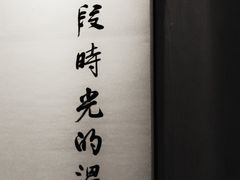 段時光的溫